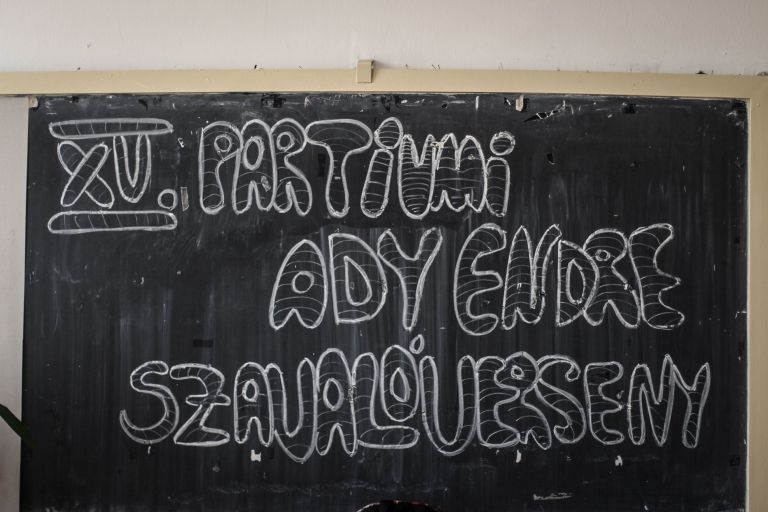 XV. PARTiUMi
ADY ENDRE
SZAVALÓVERSENY